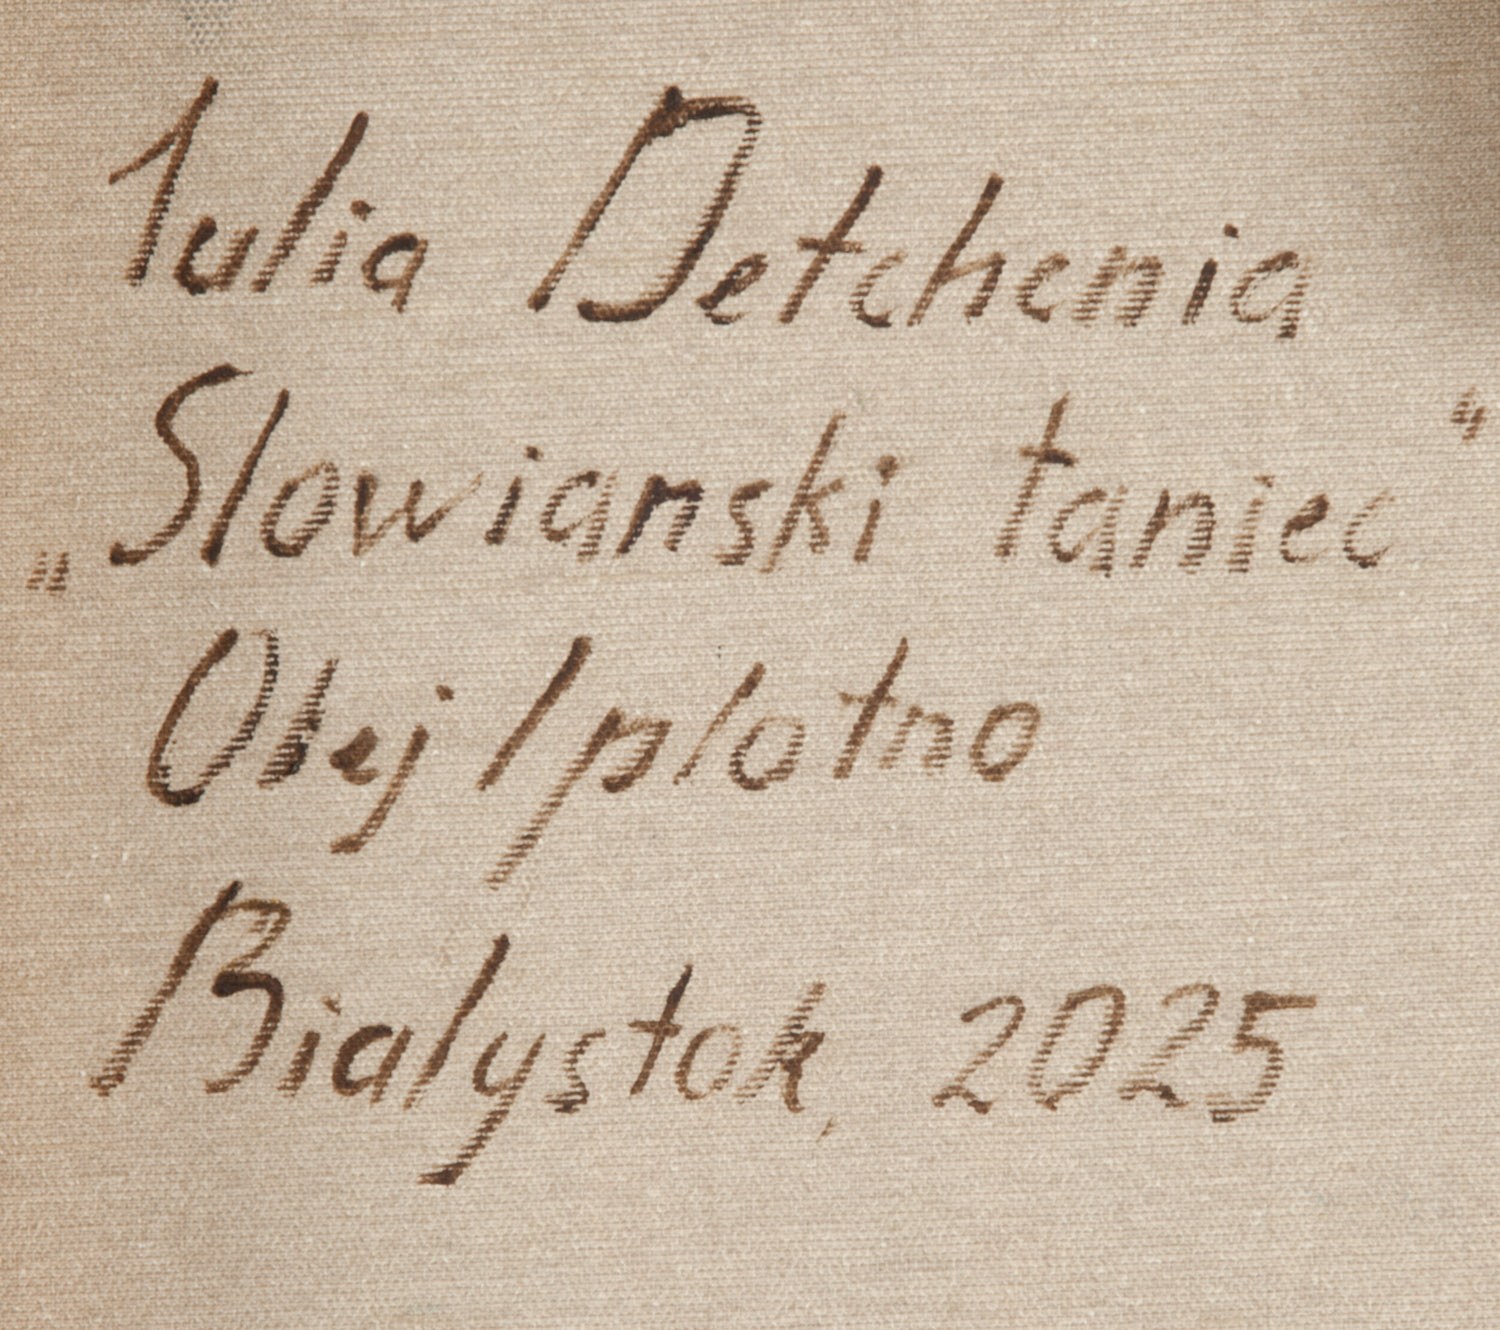 Iulia Detchenia
„Slowianski taniec”
Olej/plotno
Bialystok, 2025